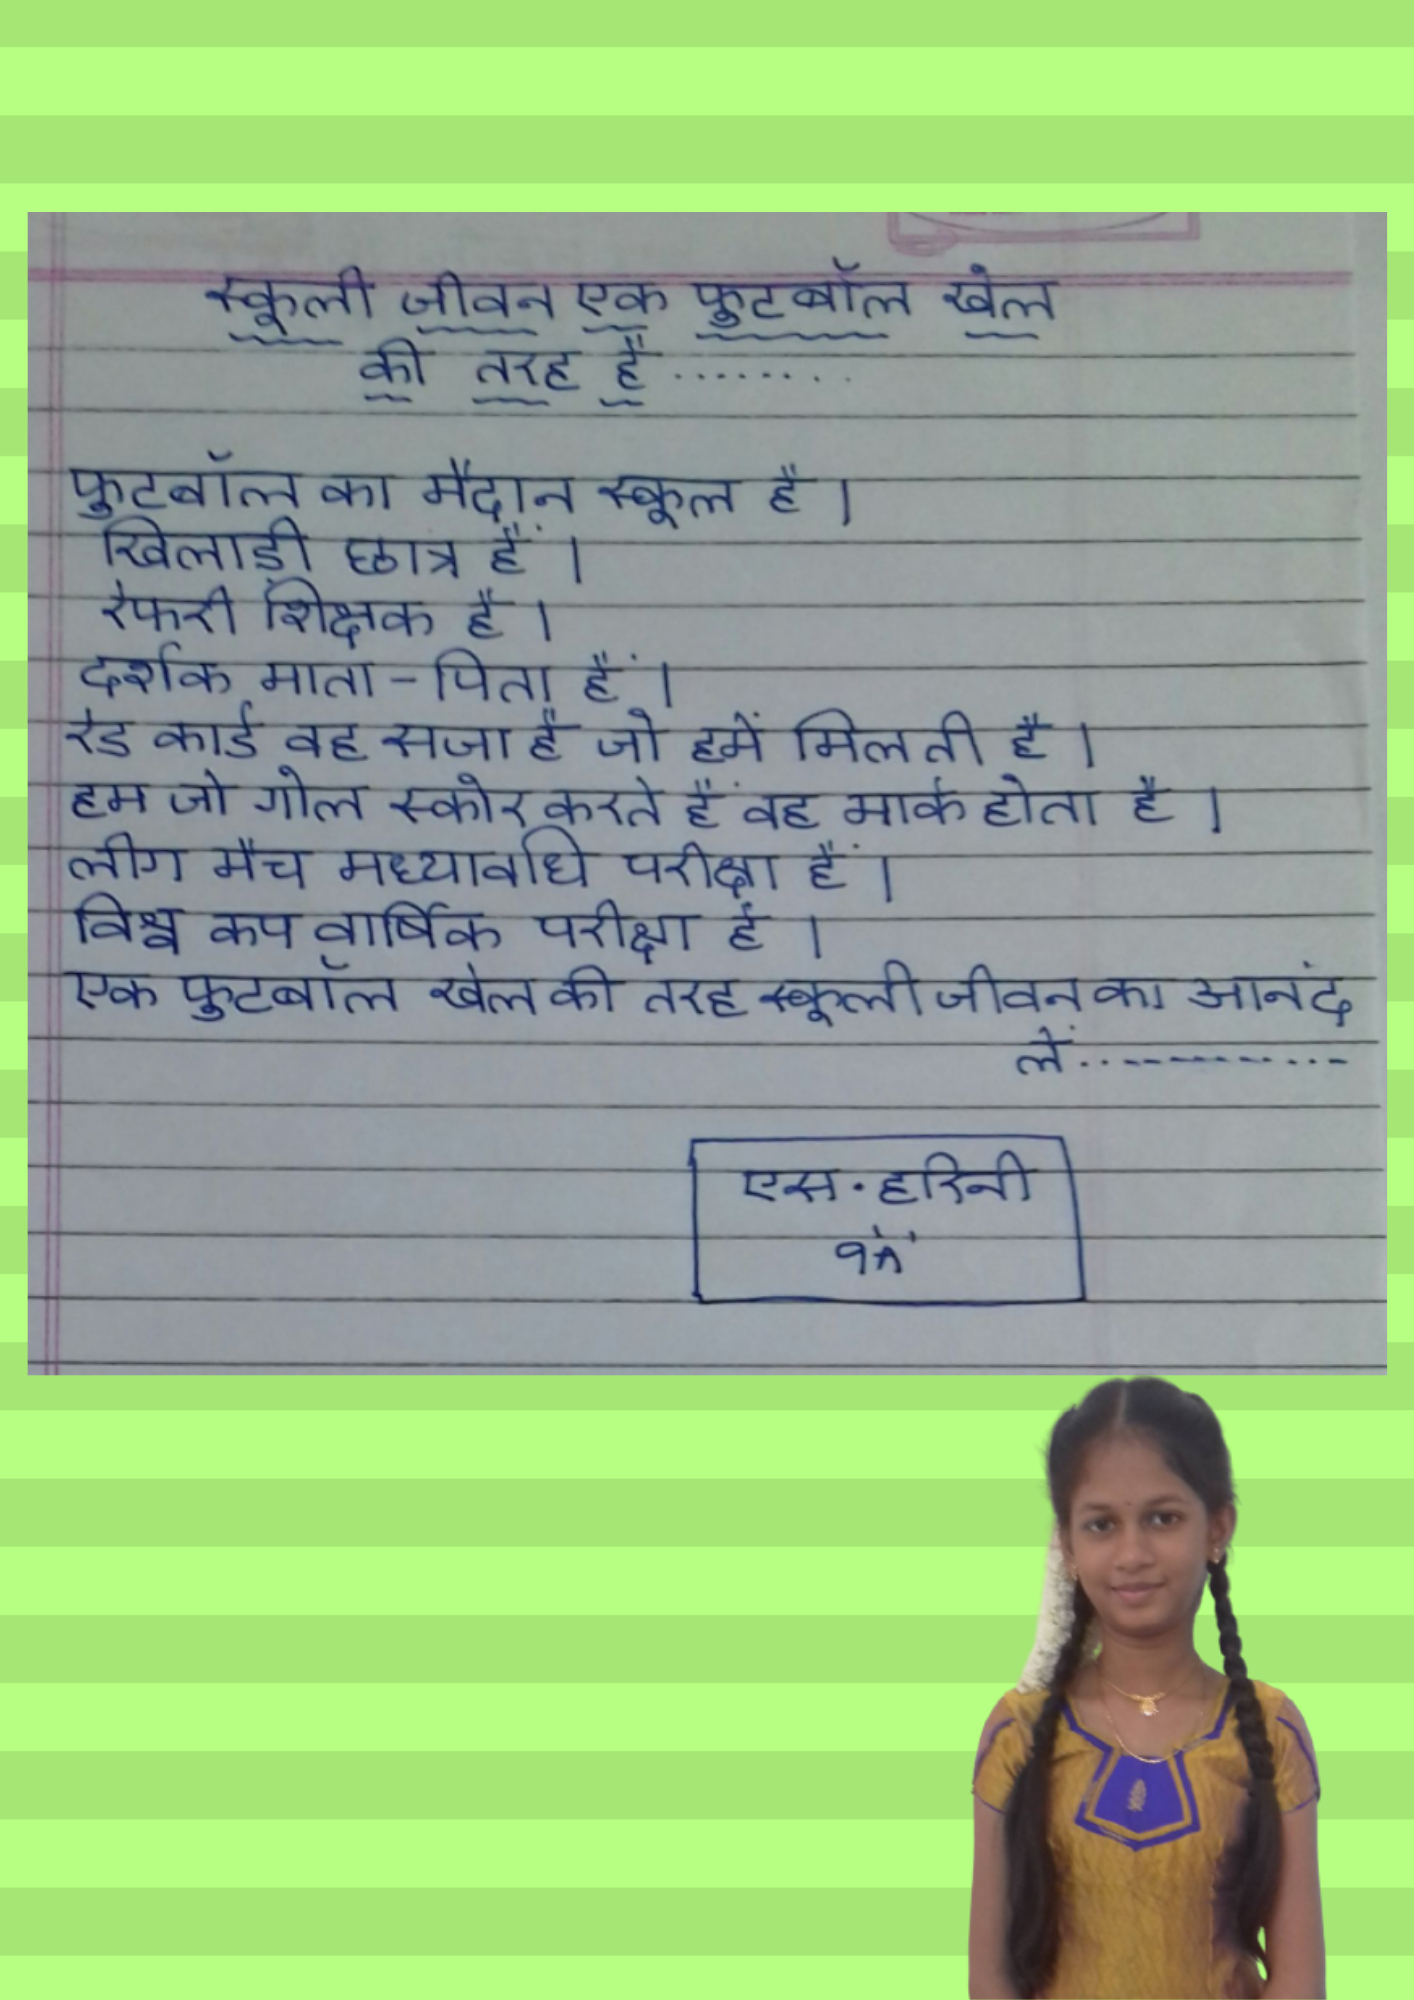 स्कूली जीवन एक फुटबॉल खेल
की तरह है ........
फुटबॉल का मैदान स्कूल है ।
खिलाड़ी छात्र हैं ।
रेफरी शिक्षक है ।
दर्शक माता - पिता हैं ।
रेड कार्ड वह सजा है जो हमें मिलती है ।
हम जो गोल स्कोर करते हैं वह मार्क होता है ।
लीग मैच मध्यावधि परीक्षा हैं ।
विश्व कप वार्षिक परीक्षा है ।
एक फुटबॉल खेल की तरह स्कूली जीवन का आनंद
लें ............
एस. हरिनी